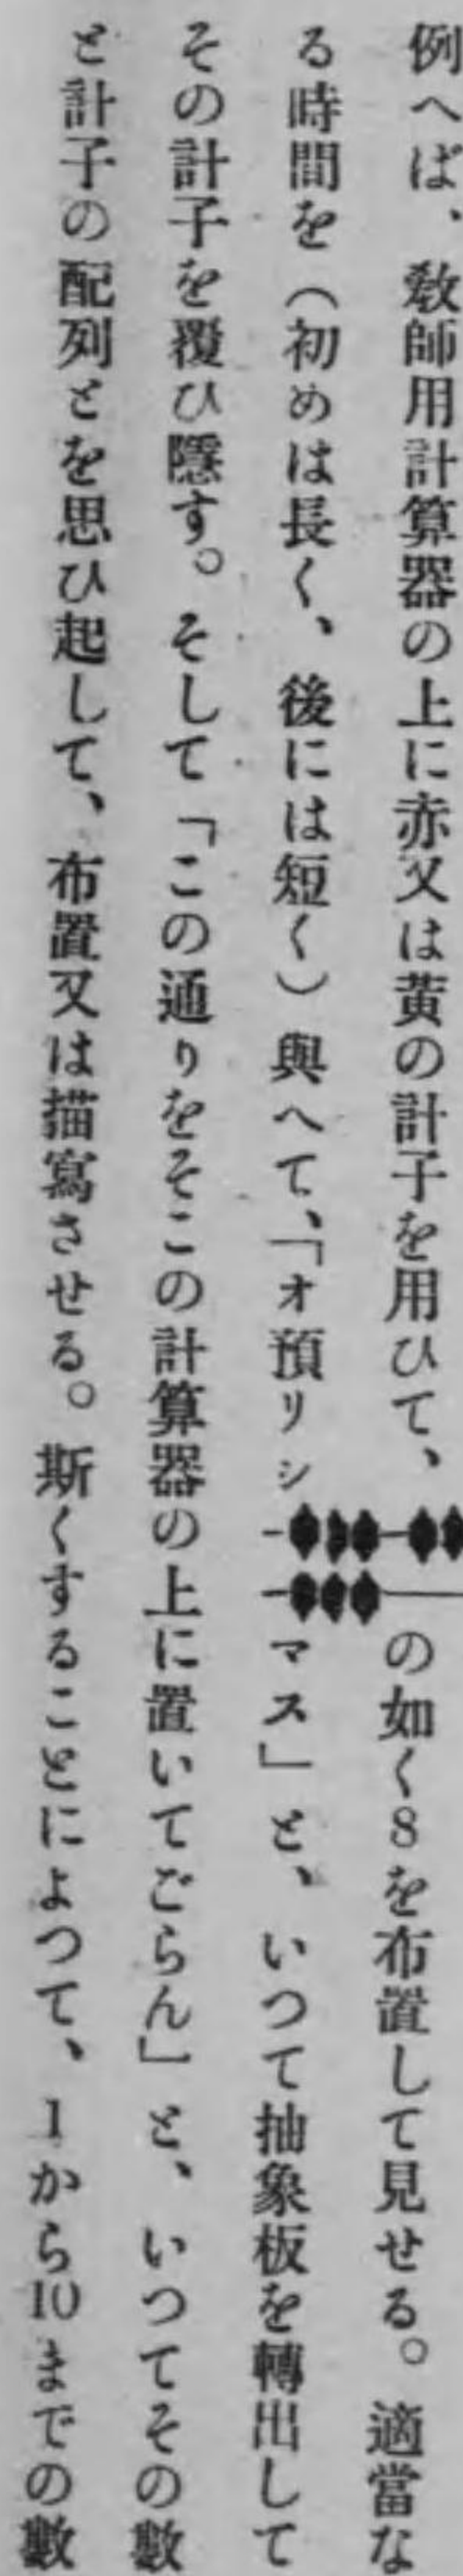 例へば、敎師用計算器の上に赤又は黄の計子を用ひて、の如く8を布置して見せる。適當な
る時間を（初めは長く、後には短く）與へて、「オ預リシマス」と、いつて抽象板を轉出して
その計子を覆ひ隱す。そして「この通りをそこの計算器の上に置いてごらん」と、いつてその數
と計子の配列とを思ひ起して、布置又は描寫させる。斯くすることによつて、1から10までの數